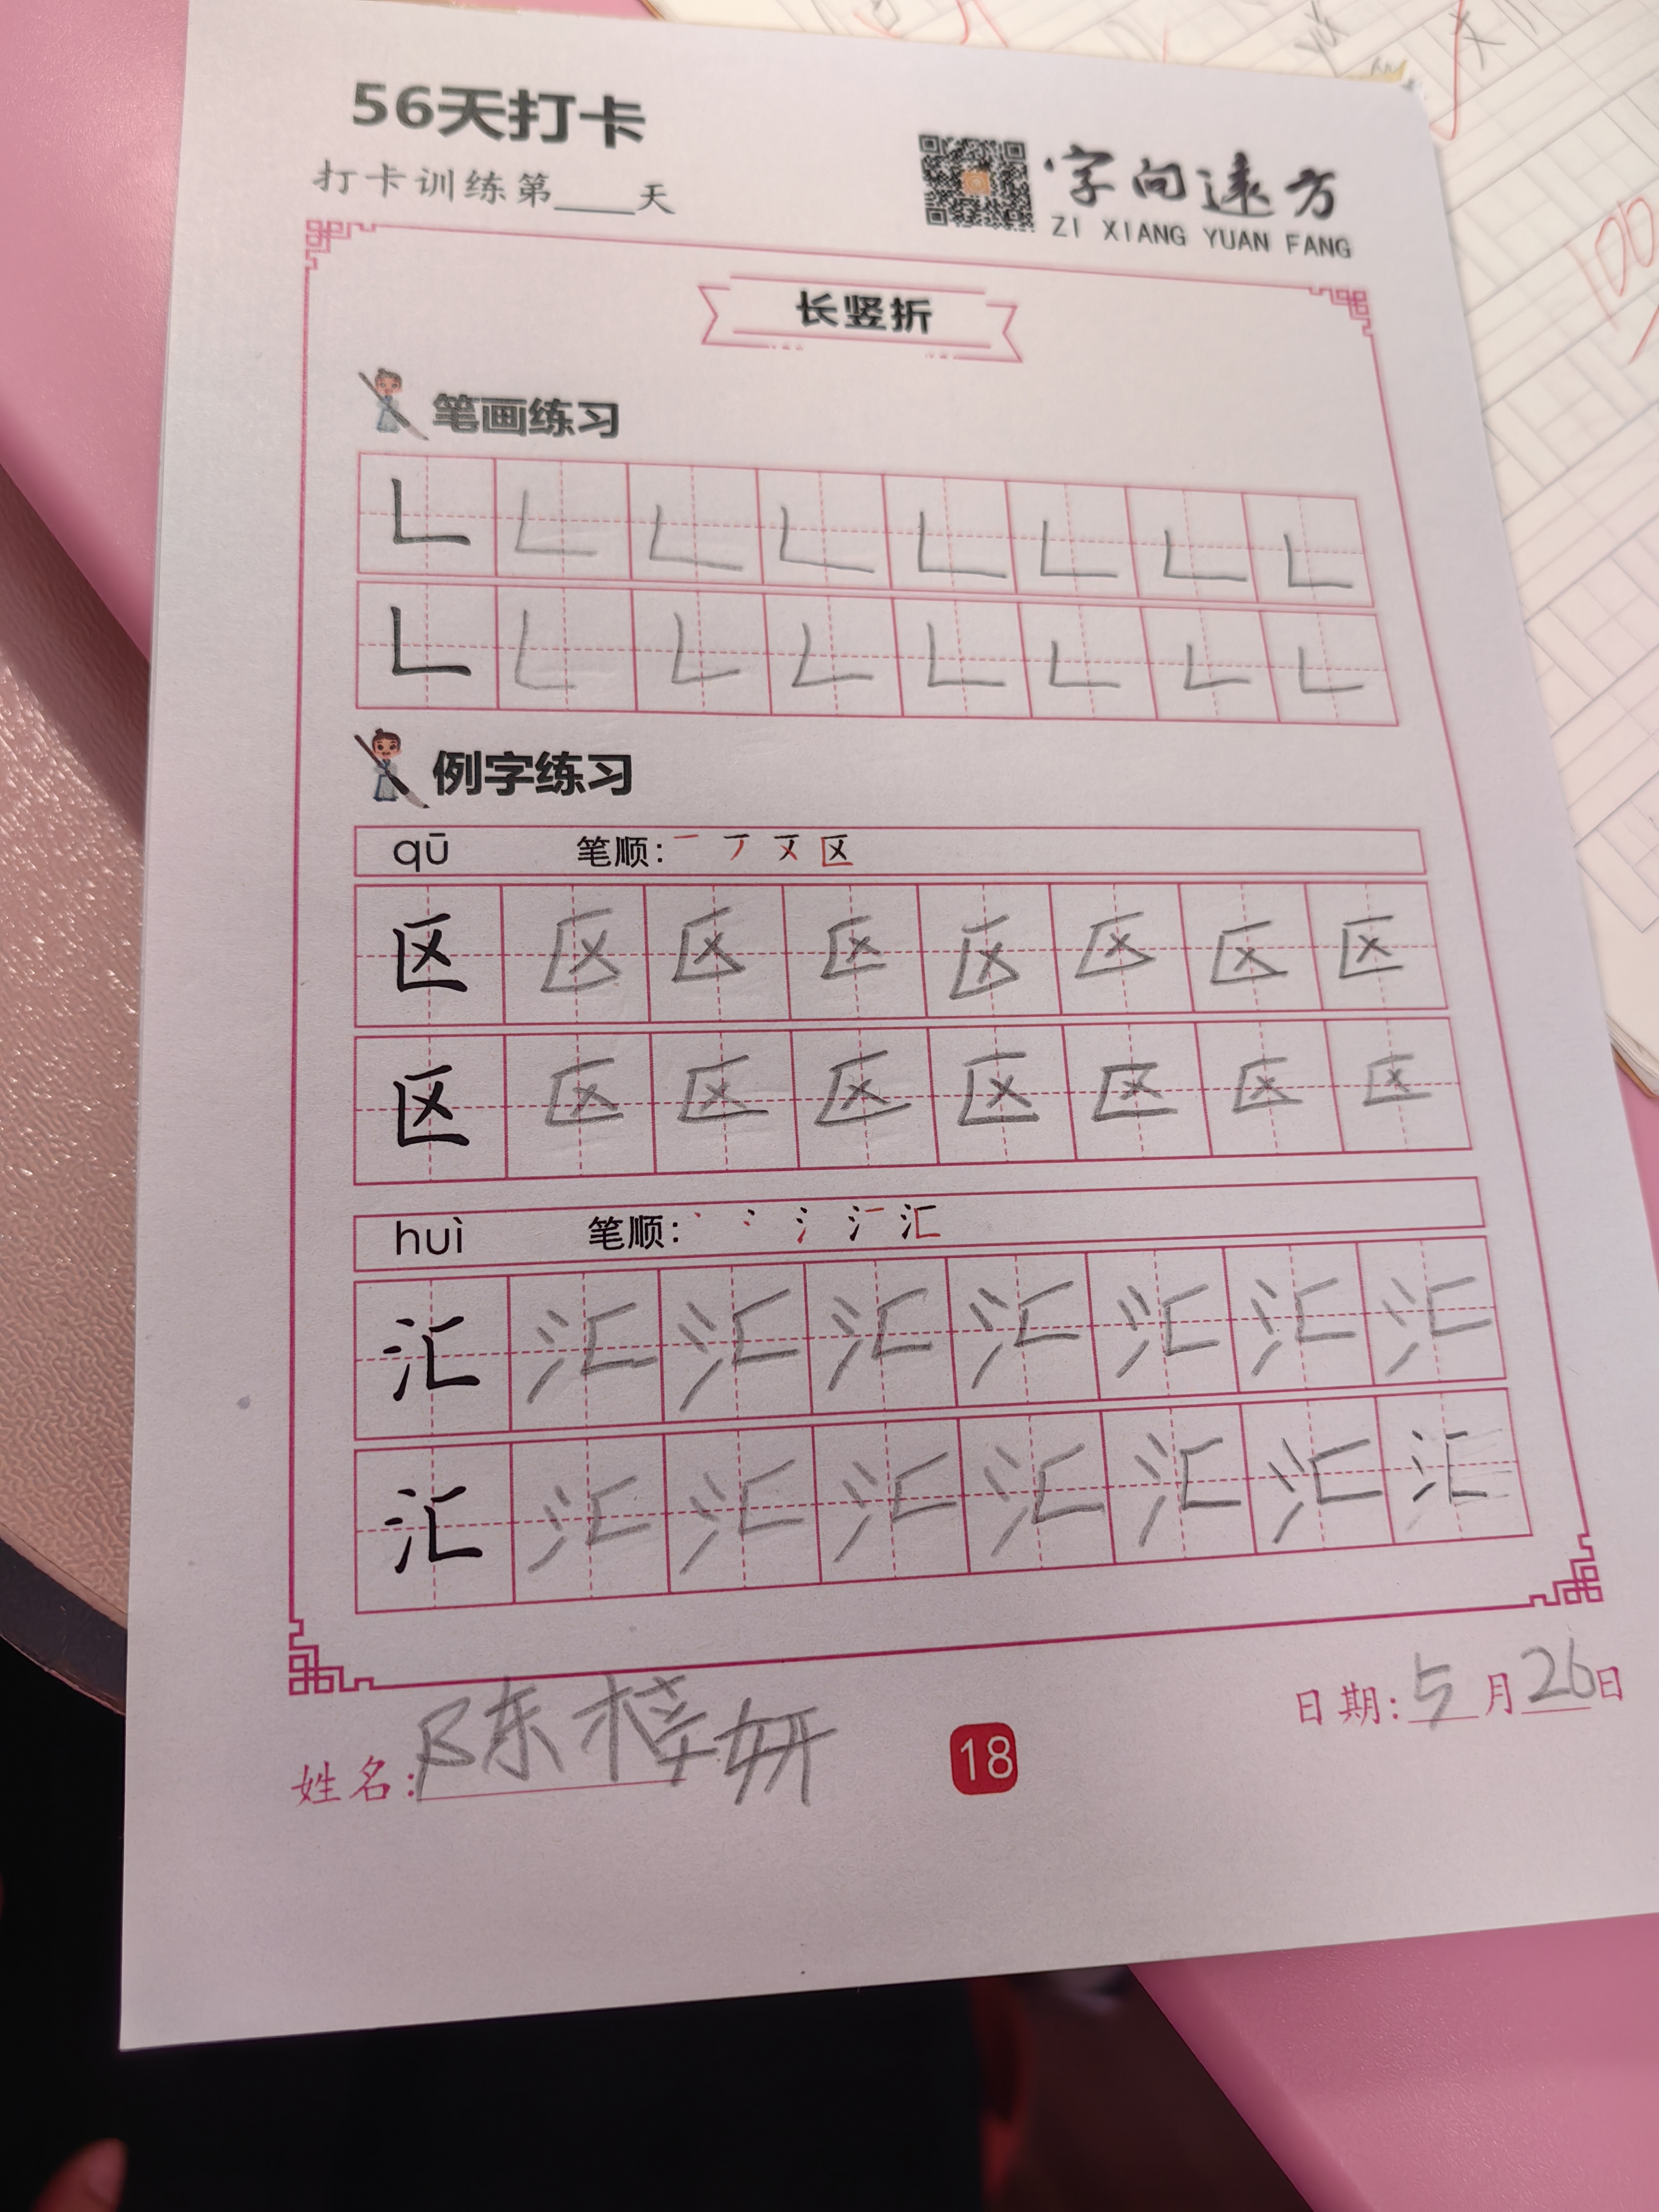 56天打卡
打卡训练第____天
字向远方
ZI XIANG YUAN FANG
长竖折
笔画练习
𠃊 𠃊 𠃊 𠃊 𠃊 𠃊 𠃊 𠃊
𠃊 𠃊 𠃊 𠃊 𠃊 𠃊 𠃊 𠃊
例字练习
qū 笔顺: 区
区 区 区 区 区 区 区 区
区 区 区 区 区 区 区 区
huì 笔顺: 汇
汇 汇 汇 汇 汇 汇 汇 汇
汇 汇 汇 汇 汇 汇 汇 汇
日期:5月26日
姓名:陈梓妍
18
100